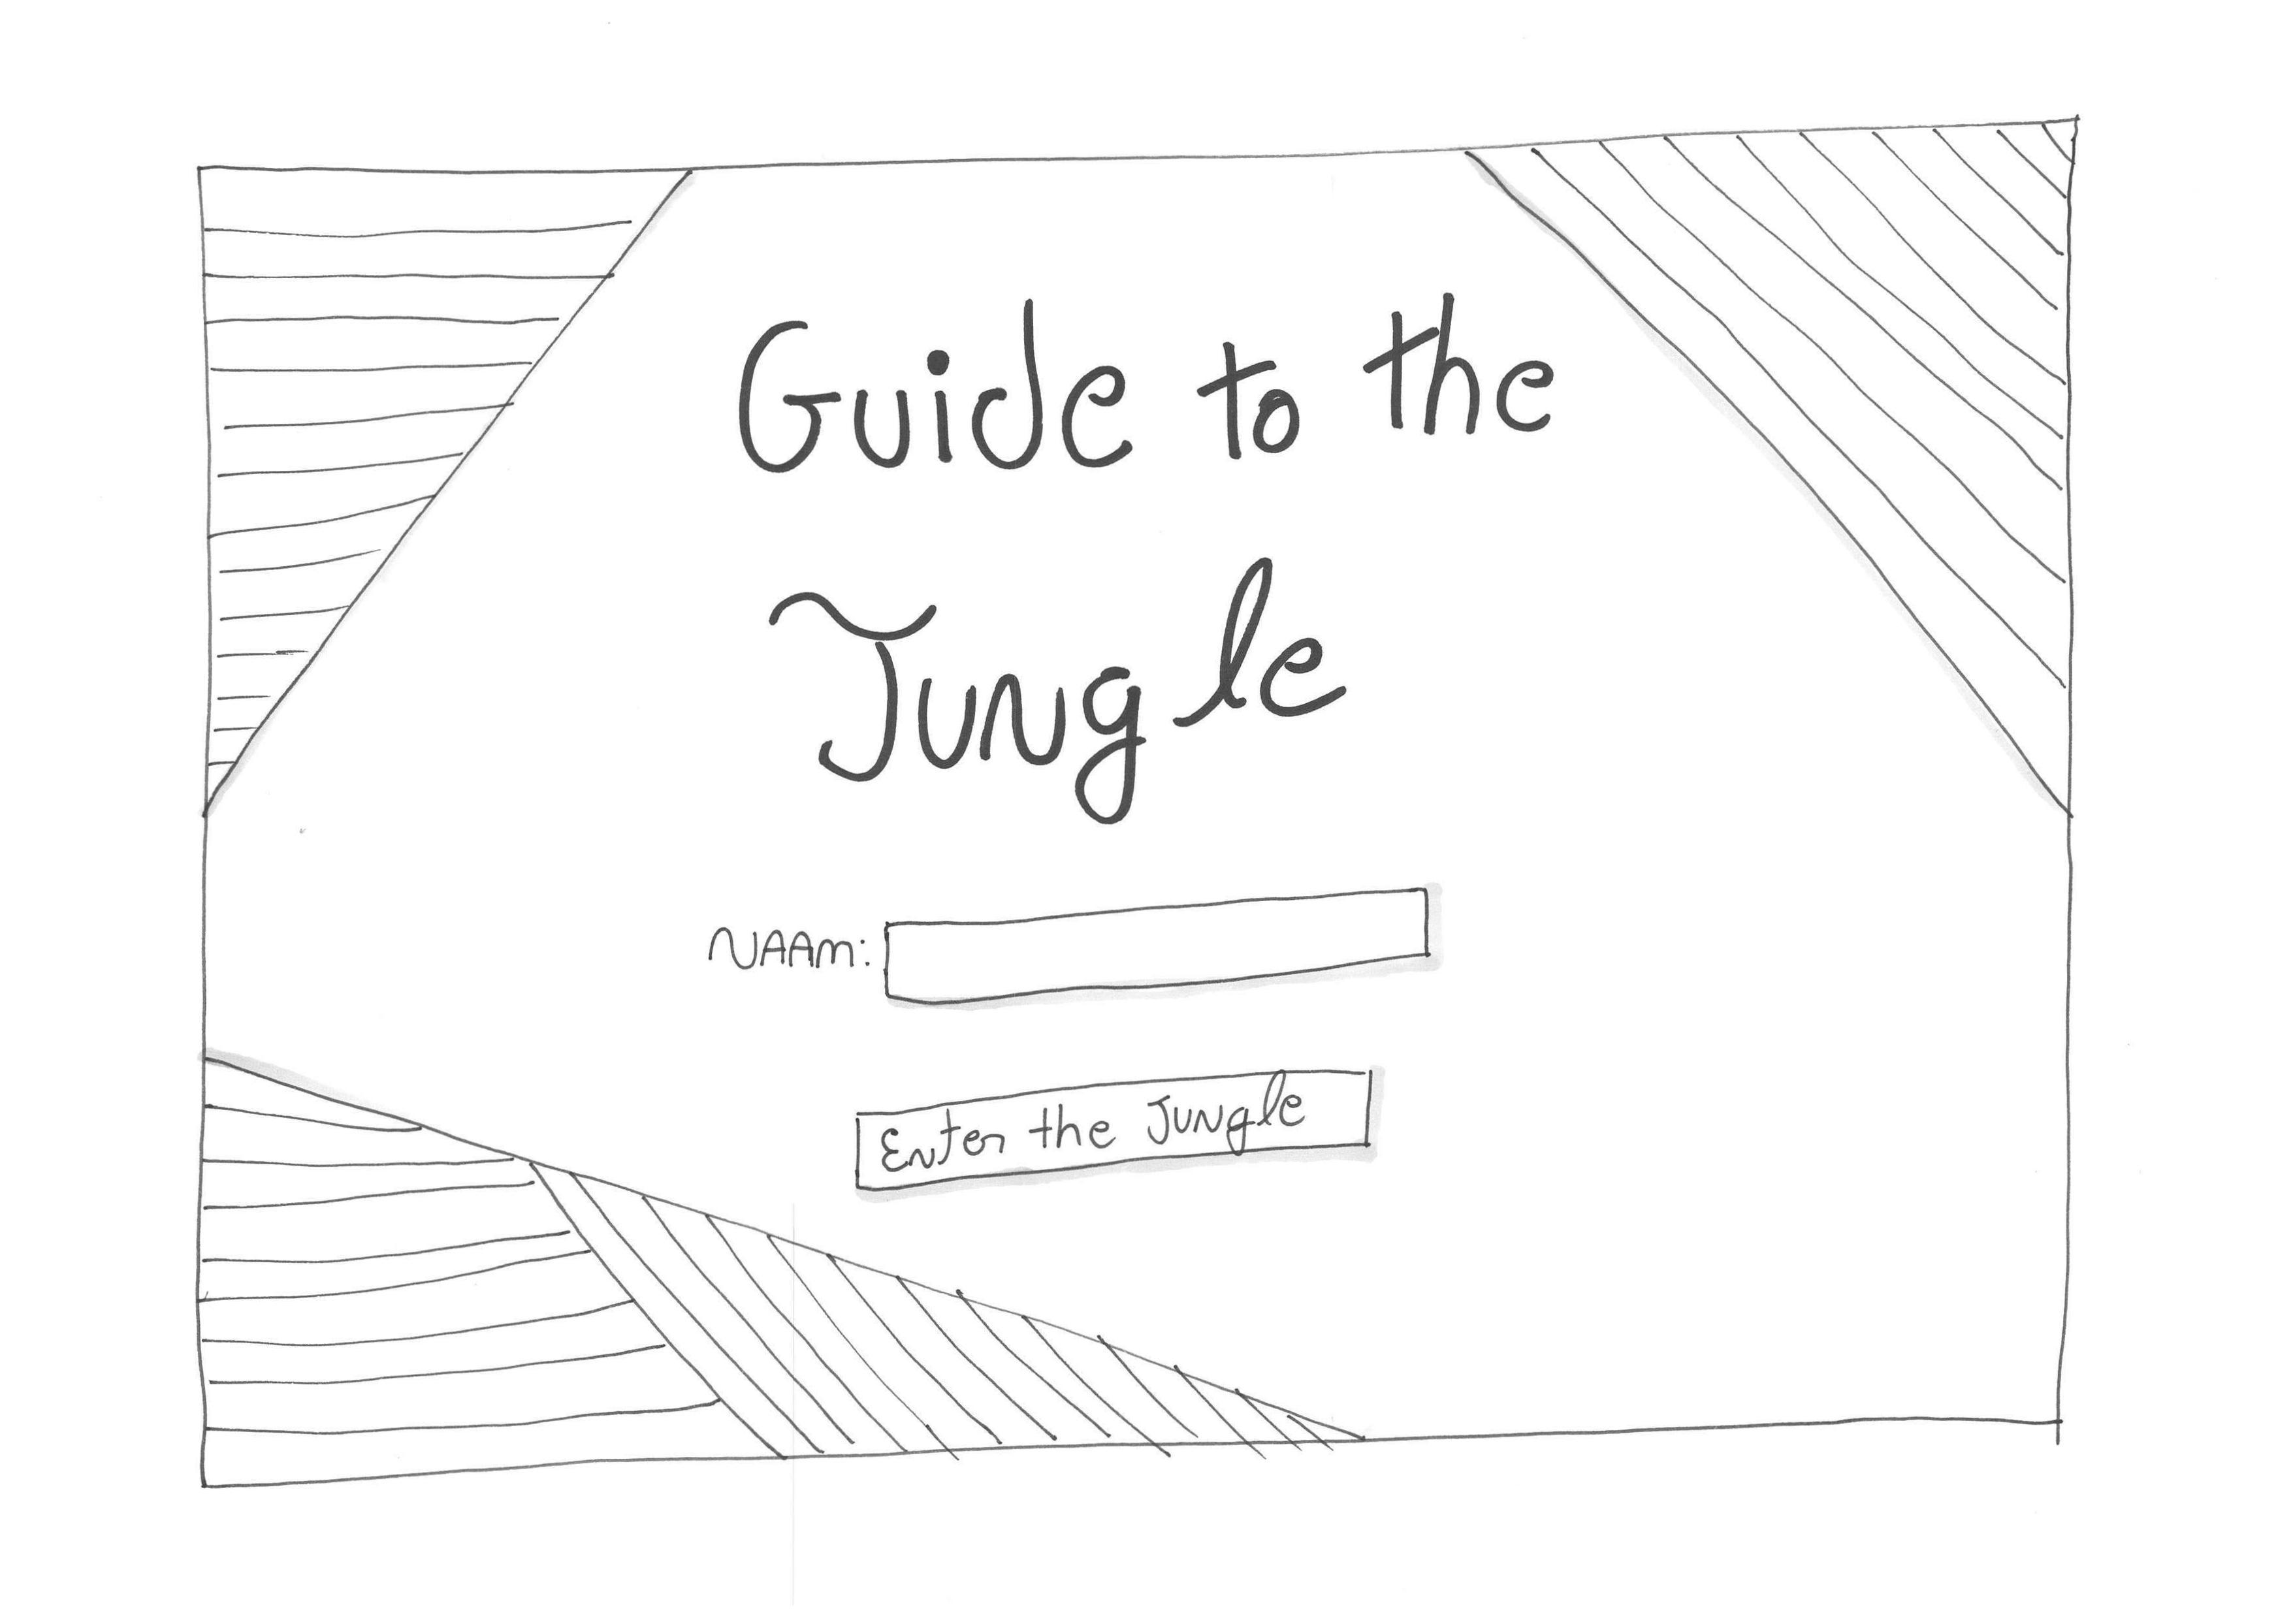 Guide to the
Jungle
NAAM:
Enter the Jungle